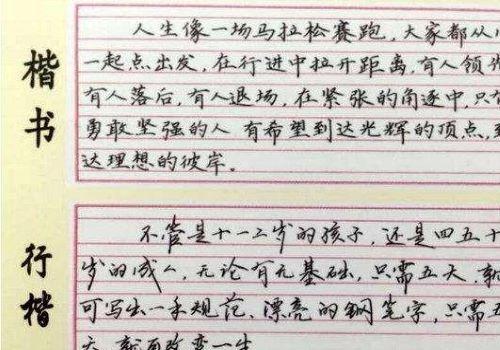 楷书
人生像一场马拉松赛跑，大家都从
一起点出发，在行进中拉开距离，有人领先
有人落后，有人退场，在紧张的角逐中，只有
勇敢坚强的人 有希望到达光辉的顶点，
达理想的彼岸。
行楷
不管是十一二岁的孩子，还是四五十
岁的成人，无论有无基础，只需五天，就
可写出一手规范、漂亮的钢笔字，只需五
天，就 改变一生